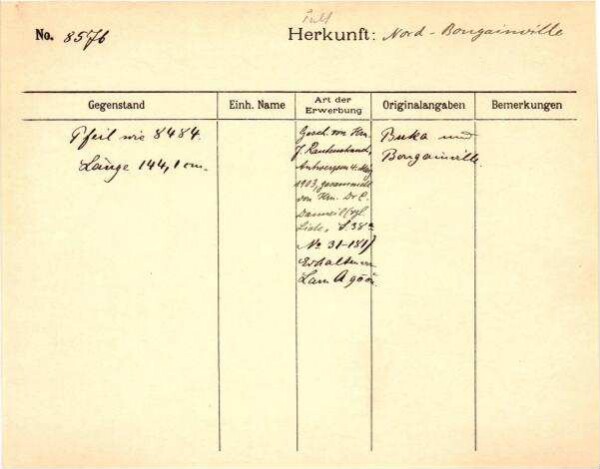 No. 8576
Herkunft: Nord-Bougainville
Gegenstand
Einh. Name
Art der Erwerbung
Originalangaben
Bemerkungen
Pfeil wie 8484.
Länge 144,1 cm.
Gesch. von Hrn.
J.
Antwerpen 4. Mai
1913, gesammelt
von Hrn. Dr. E.
(vgl.
Liste, S. 38
No 31-181)
Erhalten im
Buka und
Bougainville.